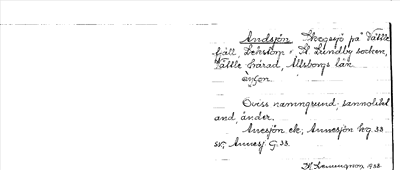 Andsjön, Skogssjö på Vättle
fjäll, Lekstorp i St. Lundby socken,
Vättle härad, Älvsborgs län
Oviss namngrund; sannolikt
and, änder.
Anesjön ek, Annesjön hg 33
sv, Annesj G. 33.